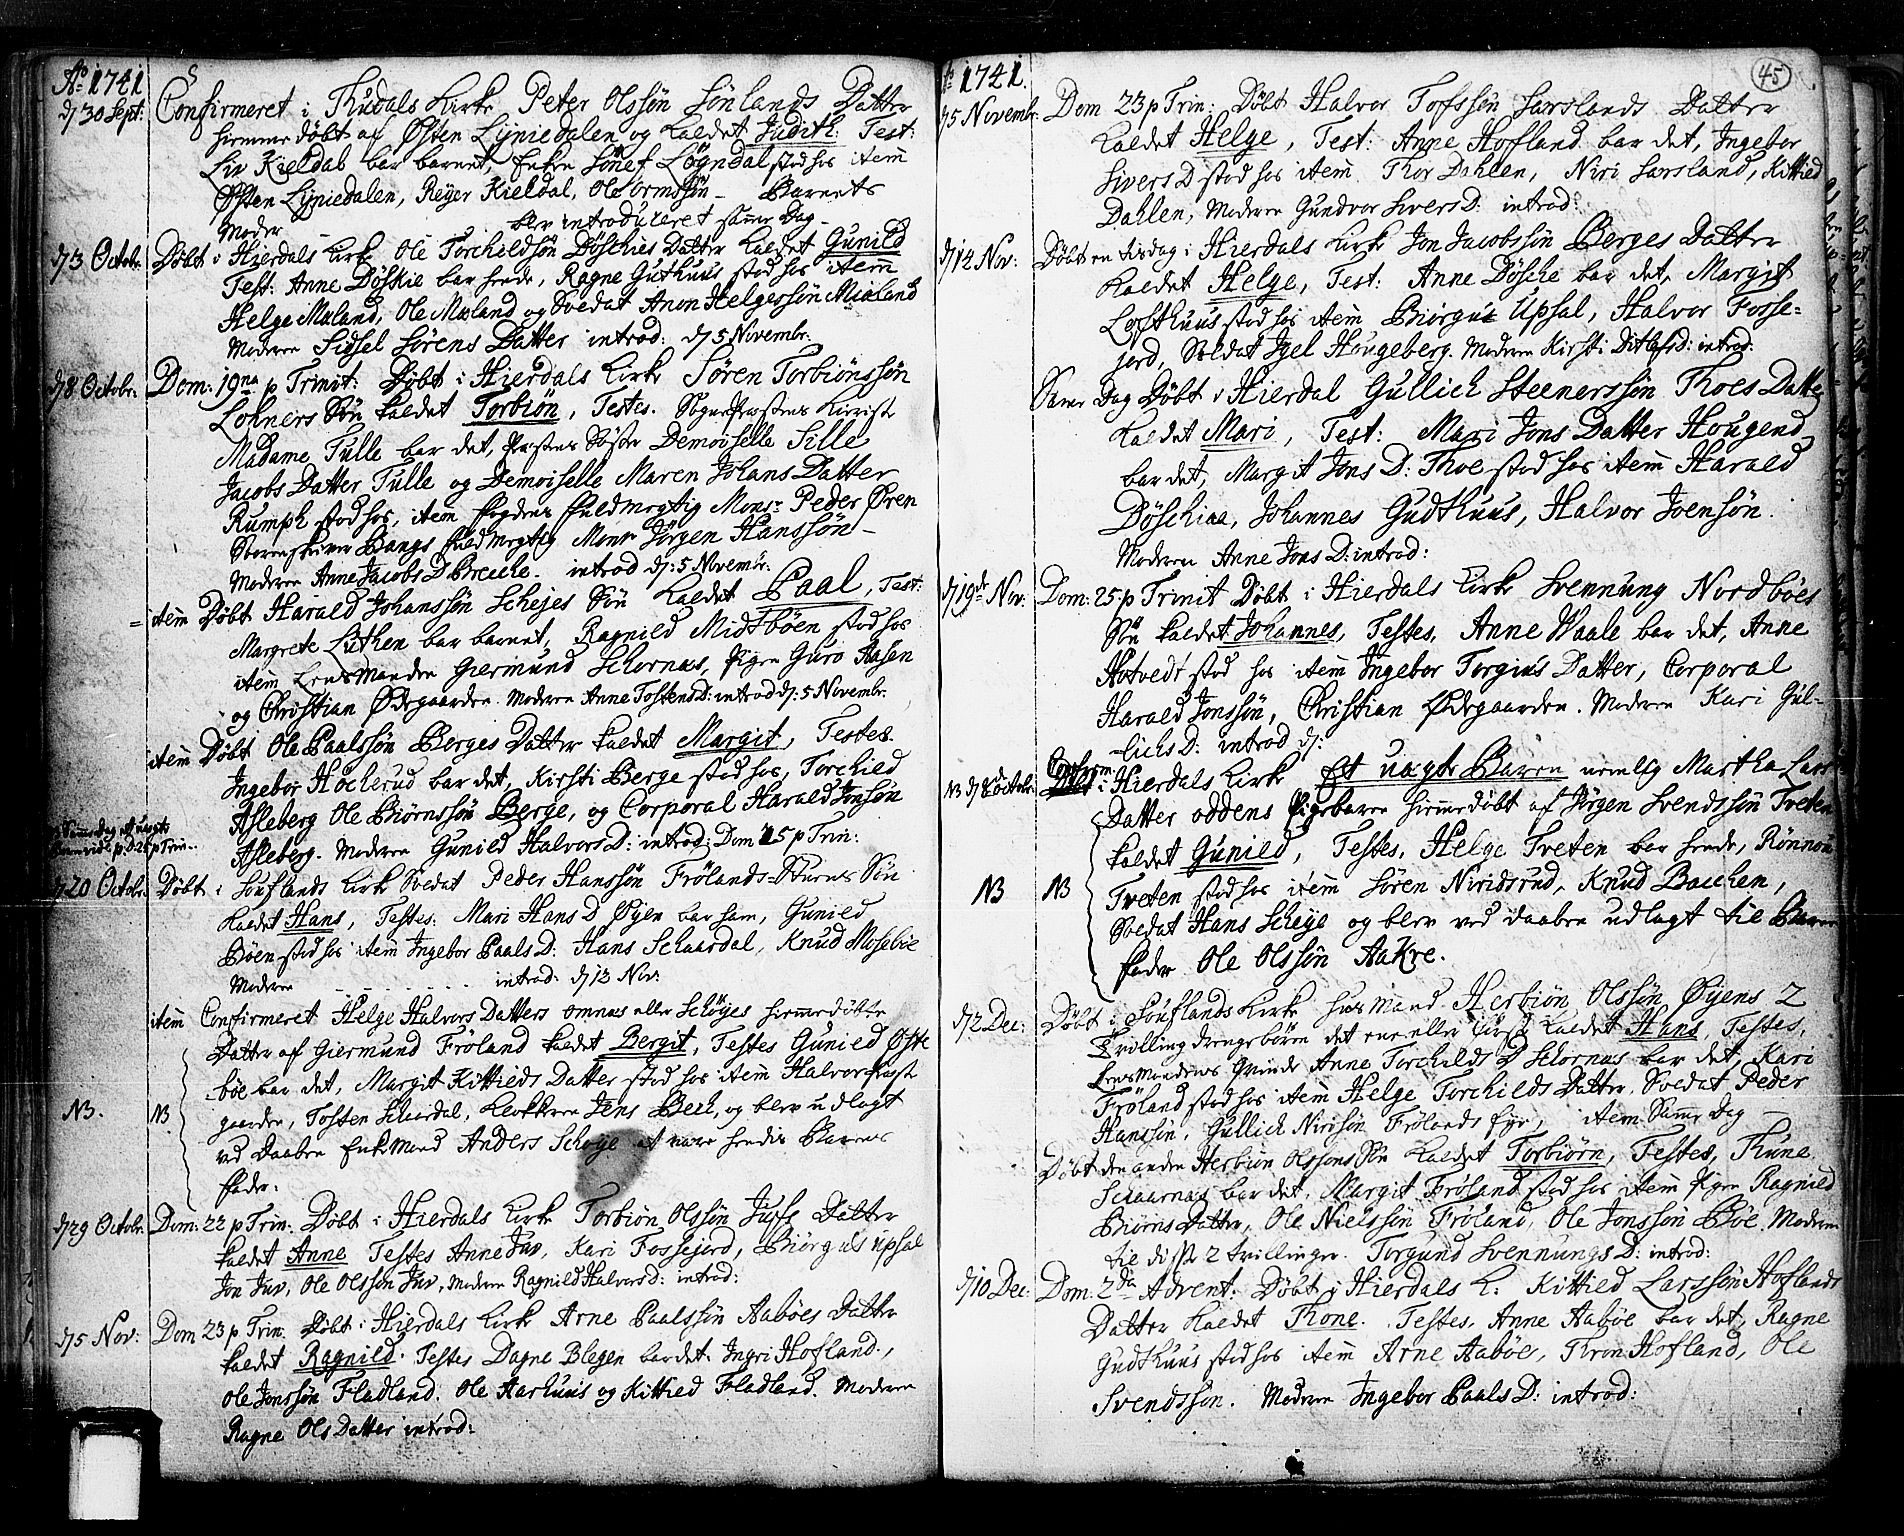 Ao 1741
d/ 30 Sept: Confirmeret i Thudals Kirke Peter Olssøn Sønlands Datter
hiemmedøbt af Østen Lyniedalen og kaldet Judith: Test:
Liv Kieldal bar barnet, Enken Sønef Løgndal stod hos item
Østen Lyniedalen, Reyer Kieldal, Ole Ormssøn – Barnets
Moder blev introduceret samme Dag –
d/ 3 Octobr. Døbt i Hierdals Kirke Ole Torchildsøn Døschies Datter kaldet Gunild
Test: Anne Døskie bar hende, Ragne Guthuus stod hos item
Helge Mæland, Ole Mæland og Soldat Anon Helgessøn Mæland
Moderen Sidsel Sørens Datter introd: d/ 5 Novembr.
d/ 8 Octobr. Dom: 19na p Trinit: Døbt i Hierdals Kirke Søren Torbiønssøn
Lohners Søn kaldet Torbiøn, Testes. Sogne Præstens Kieriste
Madame Tulle bar det, Præstens Søster Demoiselle Sille
Jacobs Datter Tulle og Demoiselle Maren Johans Datter
Rumph stod hos, item Fogdens fuldmegtig Monsr Peder Øren
Sorenskriver Bangs fuldmegtig Monsr Jørgen Hanssøn –
Moderen Anne Jacobs D Brecche. introd d/: 5 Novembr.
item Døbt Harald Johanssøn Schejes Søn kaldet Paal, Test:
Margrete Luthen bar barnet, Ragnild Midtbøen stod hos
item Lensmanden Giermund Schornæs, Pigen Guro Aasen
og Christian Ødegaarden. Moderen Anne Tostens D: introd d/: 5 Novembr.
item Døbt Ole Paalssøn Berges Datter kaldet Margit, Testes.
Ingebor Hocherud bar det, Kirsti Berge stod hos, Torchild
Asleberg Ole Biørnssøn Berge, og Corporal Harald Jonsøn
Asleberg. Moderen Gunild Halvors D: introd: Dom 25 p Trin:
d/ 20 Octobr. Døbt i Souflands Kirke Soldat Peder Hanssøn Frølands-Stuens Søn
kaldet Hans, Testes: Mari Hans D Øyen bar ham, Gunild
Bøen stod hos item Ingebor Paals D: Hans Schaardal, Knud Mosebøe
Moderen introd: d/ 13 Nov:
item Confirmeret Helge Halvors Datters omnæs eller Schøyes hiemmedøbte
Datter af Giermund Frøland kaldet Bergit, Testes Gunild Øste
NB. NB bøe bar det, Margit Kittilds Datter stod hos item Halvor
gaarden, Tosten Schaardal, Klokkeren Jens Bech, og blev udlagt
ved Daaben Enkemand Anders Schøye at være hendes Barns
fader.
d/ 29 Octobr. Dom: 22 p Trin: Døbt i Hierdals Kirke Torbiøn Olssøn Jufs Datter
kaldet Anne Testes Anne Juv, Kari Fossejord, Biørgulf Upsal
Jon Juv, Ole Olssøn Juv, Moderen Ragnild Halvors D: introd:
d/ 5 Nov: Dom 23 p Trin. Døbt i Hierdals Kirke Arne Paalssøn Aabøes Datter
kaldet Ragnild. Testes Dagne Blegen bar det. Ingri Hofland,
Ole Jonssøn Fladland. Ole Aarhuus og Kittild Fladland. Moderen
Ragne Ols Datter introd:
45
Ao 1741.
d/ 5 Novembr. Dom 23 p Trin: Døbt Halvor Tofssøn Sarslands Datter
kaldet Helge, Test: Anne Hofland bar det, Ingebor
Sivers D stod hos item Thor Dahlen, Niri Sarsland, Kittild
Dahlen, Moderen Gundvor Sivers D: introd:
d/ 14 Nov: Døbt en tisdag i Hierdals Kirke Jon Jacobssøn Berges Datter
kaldet Helge, Test: Anne Døsche bar det, Margit
Lofthuus stod hos item Biørgulf Upsal, Halvor Fosse-
jord, Soldat Igel Hougeberg. Moderen Kirsti Ditlefs D: introd:
Samme Dag Døbt i Hierdal Gullich Steenerssøn Thoes Datter
kaldet Mari, Test: Mari Jons Datter Hougend
bar det, Margit Jons D: Thoe stod hos item Harald
Døschiaa, Johannes Gudthuus, Halvor Joensøn.
Moderen Anne Jons D: introd:
d/ 19de Nov: Dom: 25 p Trinit Døbt i Hierdals Kirke Svennung Nordbøes
Søn kaldet Johannes, Testes, Anne Waale bar det, Anne
Hotvedt stod hos item Ingebor Torgius Datter, Corporal
Harald Jonssøn, Christian Ødegaarden. Moderen Kari Gul-
lichs D: introd d/:
NB d/ 8 Octobr. i Hierdals Kirke Et uægte Baren nemlig Martha Lars
Datter oddens Pigebaren hiemmedøbt af Jørgen Svendssøn Tveten
kaldet Gunild, Testes, Helge Tveten bar hende, Rønnou
NB NB Tveten stod hos item Søren Niridsrud, Knud Bacchen,
Soldat Hans Scheye og blev ved daaben udlagt til Barne
fader Ole Olssøn Aakre.
d/ 2 Dec: Døbt i Souflands Kirke Huusmand Herbiøn Olssøn Øyens 2
Tvilling drengebørn det ene eller første kaldet Hans, Testes,
Lensmandens Qvinde Anne Torchilds D Schornæs bar det, Kari
Frøland stod hos item Helge Torchilds Datter, Soldat Peder
Hanssøn, Gullich Nirisøn Frølands Eye, item Samme Dag
Døbt den anden Herbiøn Olssøns Søn kaldet Torbiørn, Testes, Thune
Schaarnæs bar det, Margit Frøland stod hos item Pigen Ragnild
Biørns Datter, Ole Nielssøn Frøland, Ole Jonssøn Bøe. Moderen
til disse 2 tvillinger. Torgund Svennungs D: introd:
d/ 10 Dec: Dom: 2da Advent: Døbt i Hierdals K: Kittild Larssøn Hoflands
Datter kaldet Thone. Testes, Anne Aabøe bar det, Ragne
Gudthuus stod hos item Arne Aabøe, Thron Hofland, Ole
Svendssøn. Moderen Ingebor Paals D: introd: